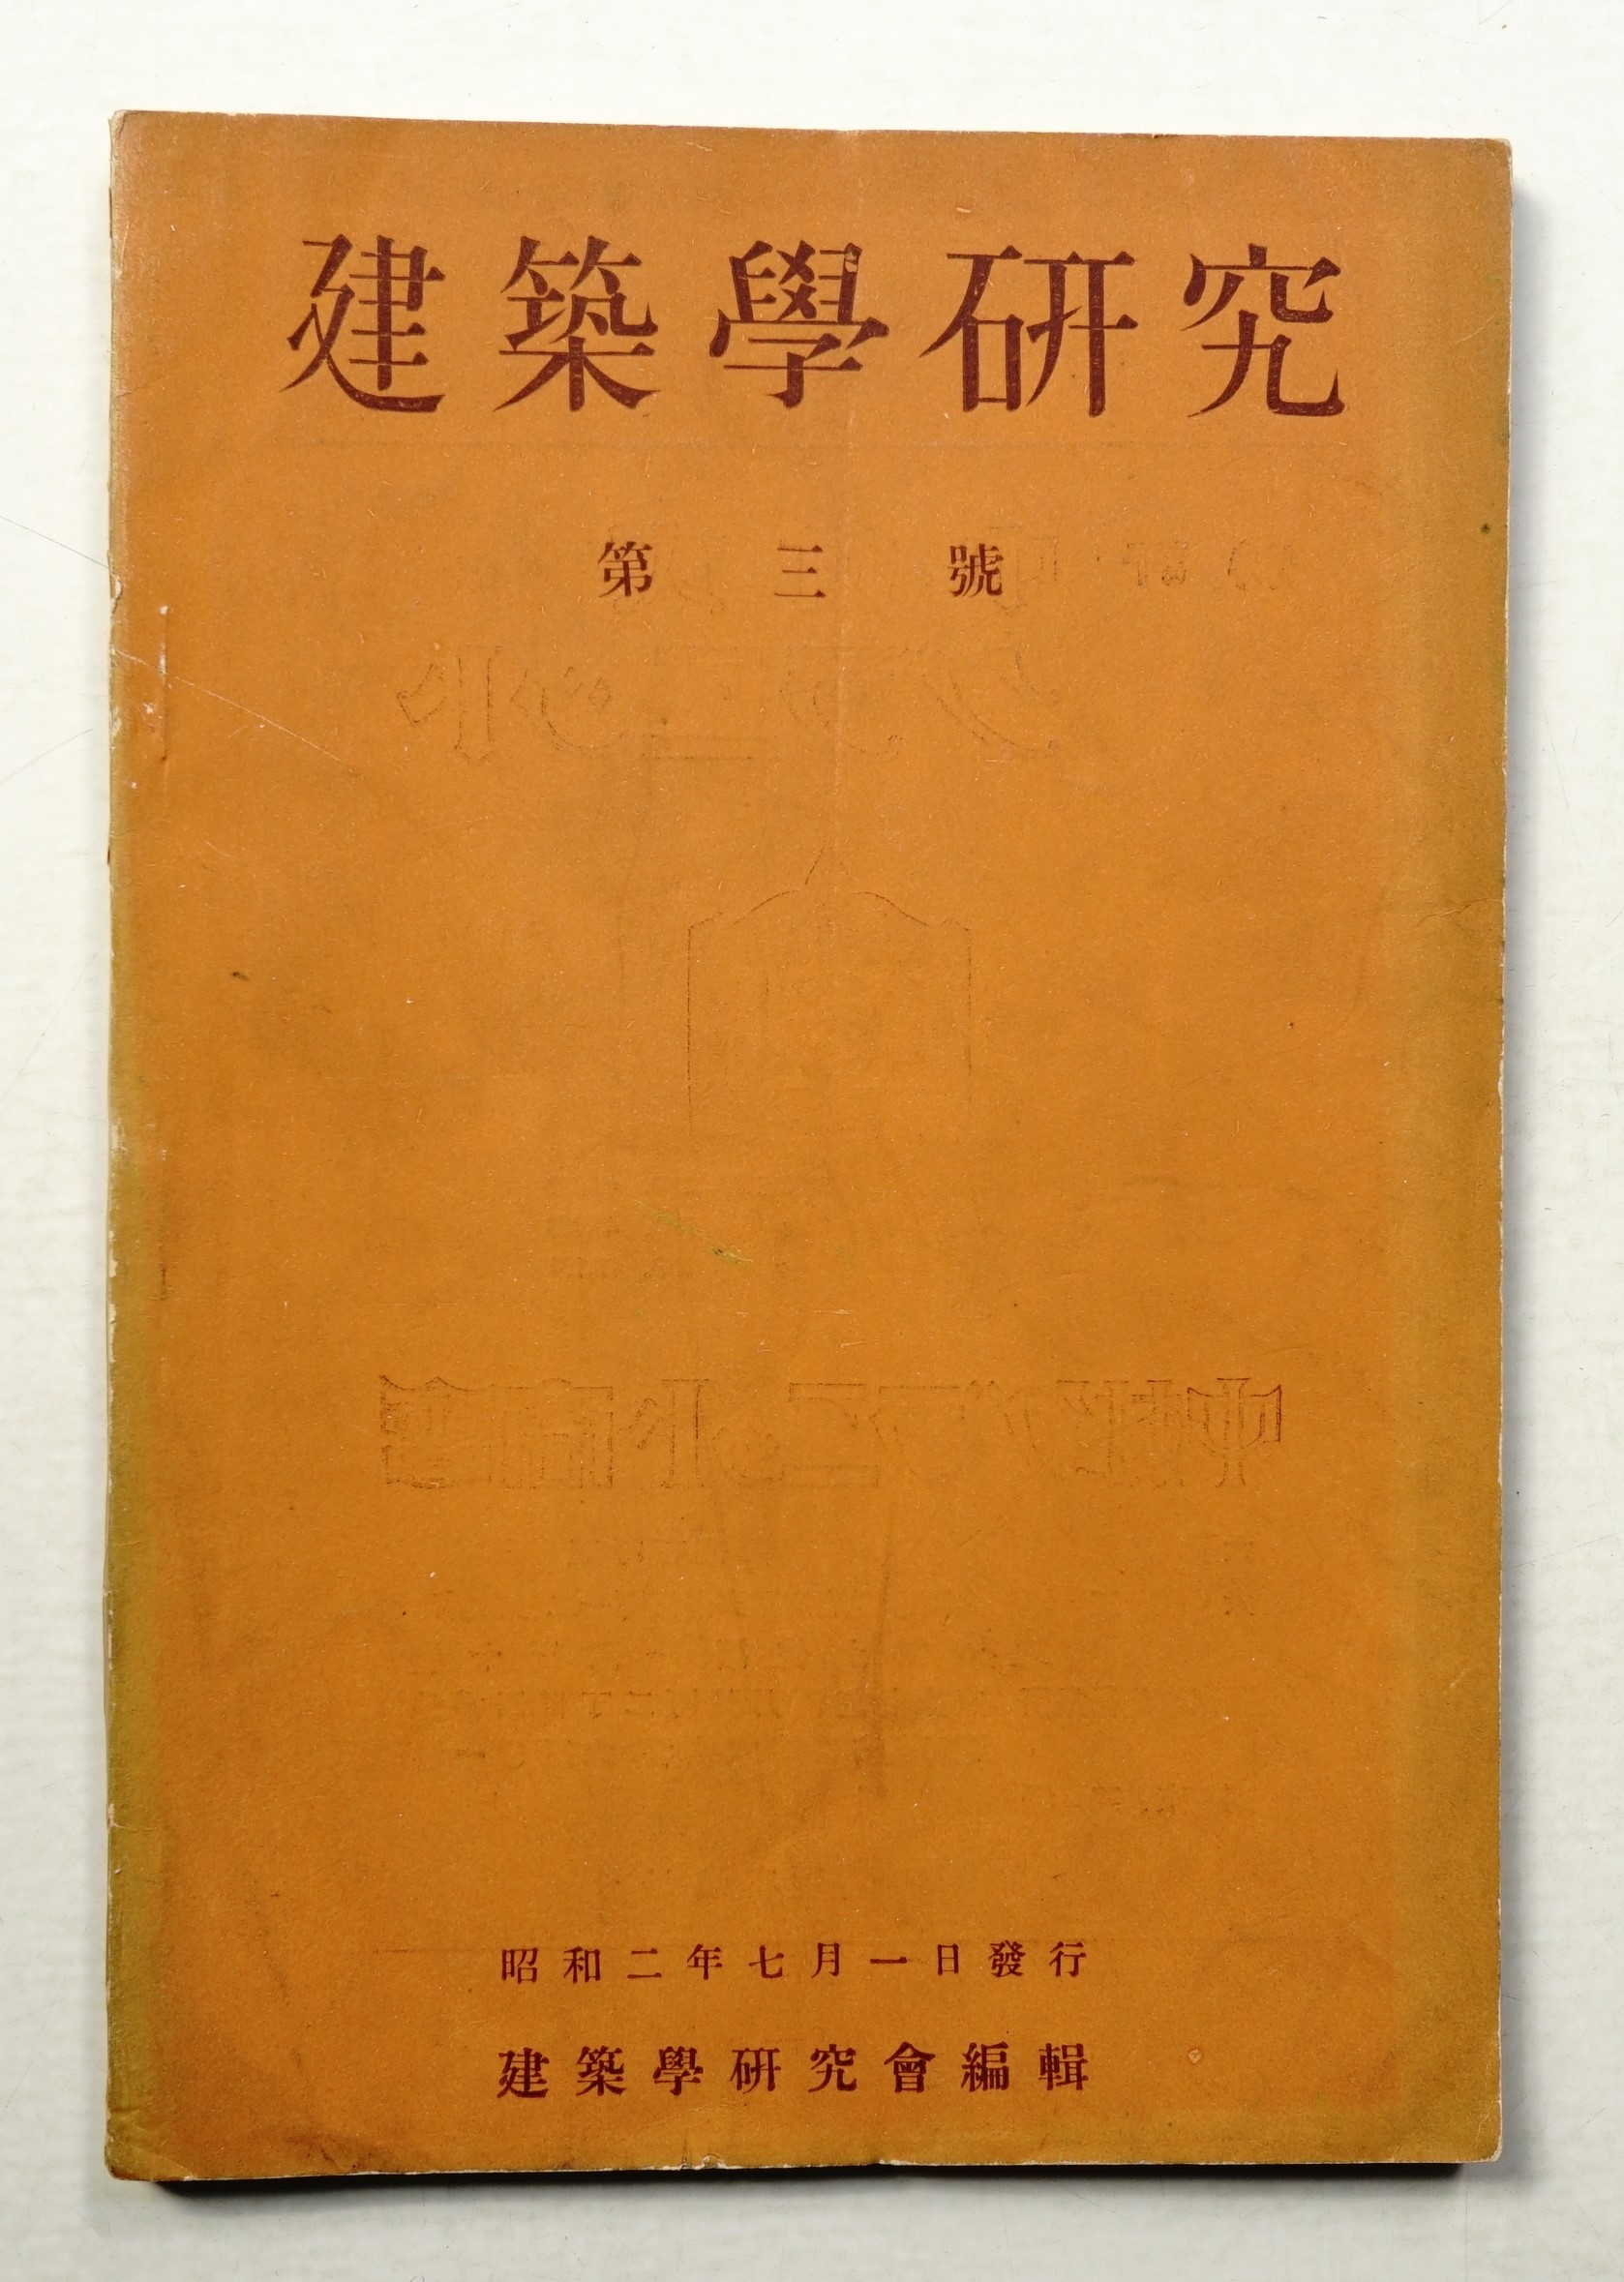 建築學研究
第三號
昭和二年七月一日發行
建築學研究會編輯